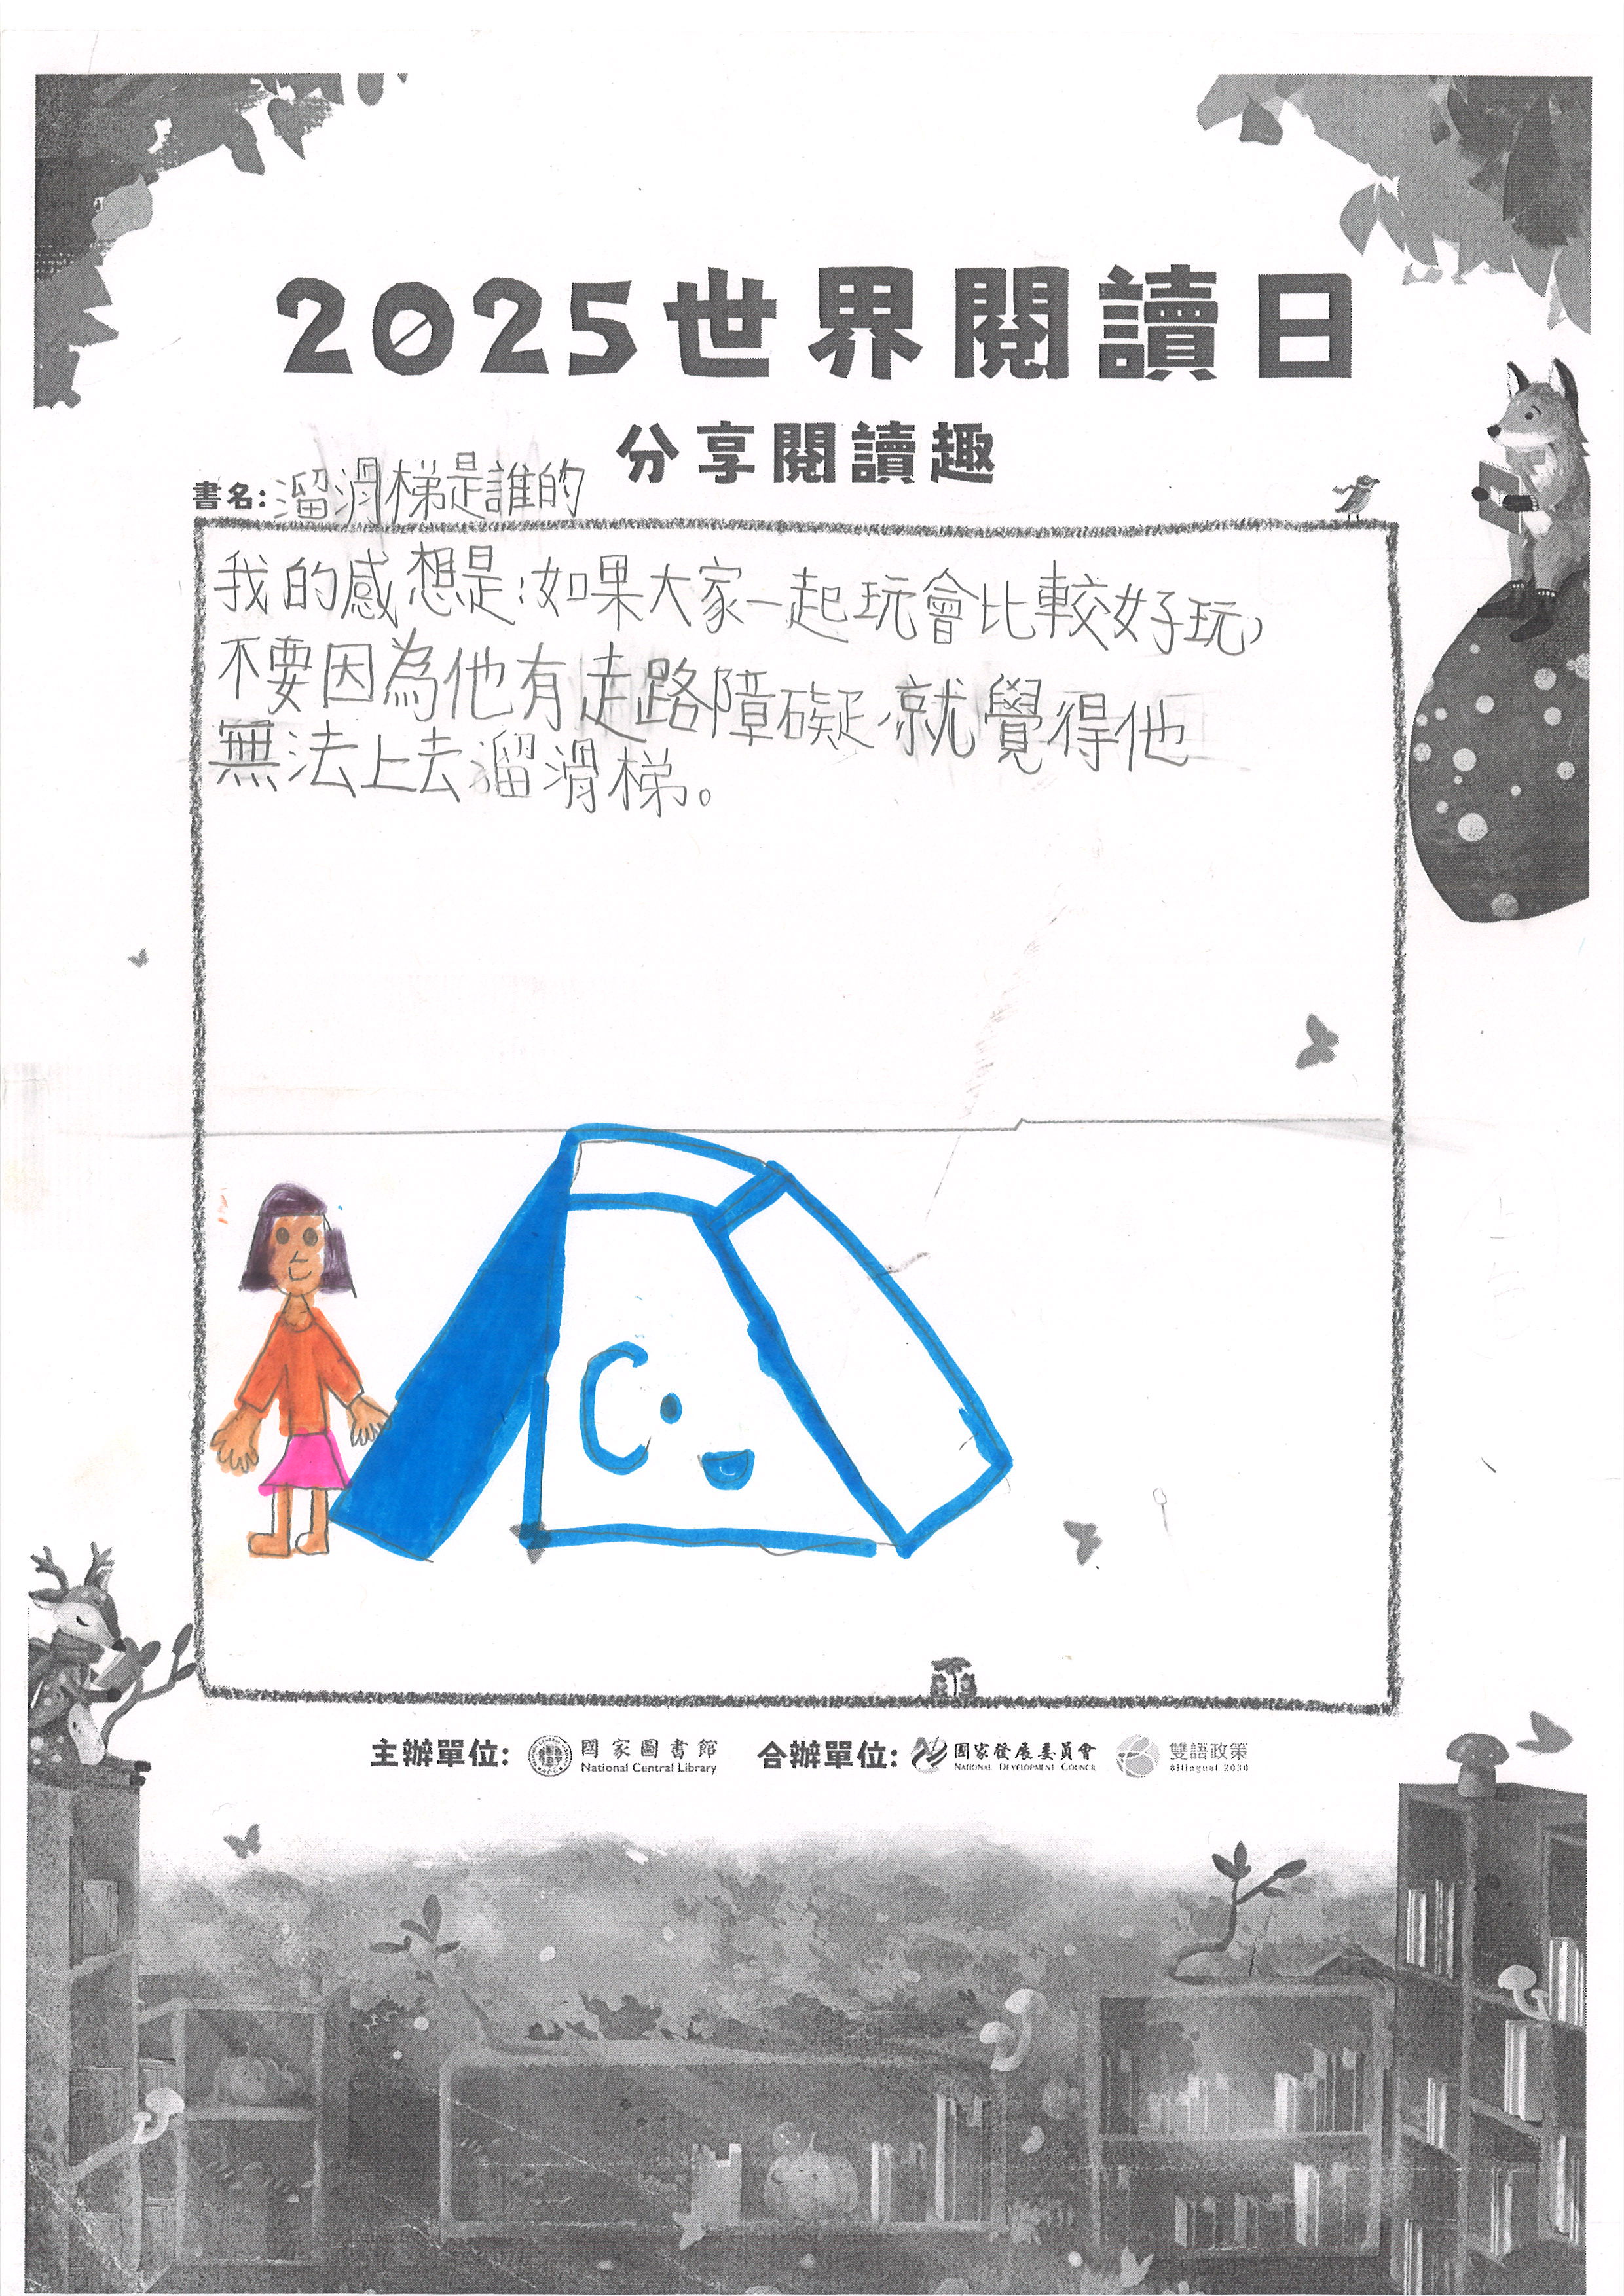 2025世界閱讀日
分享閱讀趣
書名:溜滑梯是誰的
我的感想是:如果大家一起玩會比較好玩,
不要因為他有走路障礙就覺得他
無法上去溜滑梯。
C
主辦單位: 國家圖書館 National Central Library 合辦單位: 國家發展委員會 NATIONAL DEVELOPMENT COUNCIL 雙語政策 Bilingual 2030